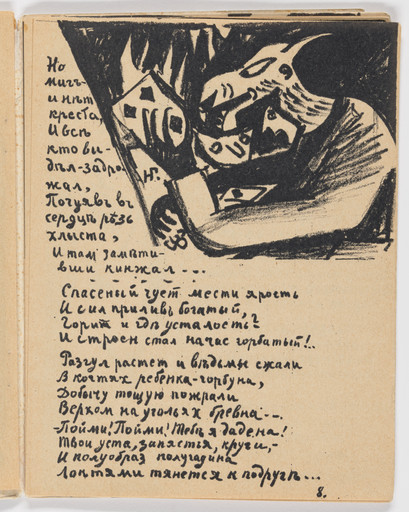 Но
мигъ-
и нѣт
креста,
И всѣ
кто ви-
дѣл-задро-
жал,
Почуявъ въ
сердцѣ рѣзь
хлыста,
И там замѣти-
вши кинжал...
Спасеный чует мести ярость
И сил приливъ богатый,
Горит и гдѣ усталость?
И строен стал на час горбатый!..
Разгул растет и вѣдьмы сжали
В когтях ребенка-горбуна,
Добычу тощую пожрали
Верхом на угольях бревна...
-Пойми! Пойми! Тебѣ я дадена!
Твои уста, запястья, круги,-
И полуобраз полугадина
Локтями тянется к подругѣ...
НГ.
8.